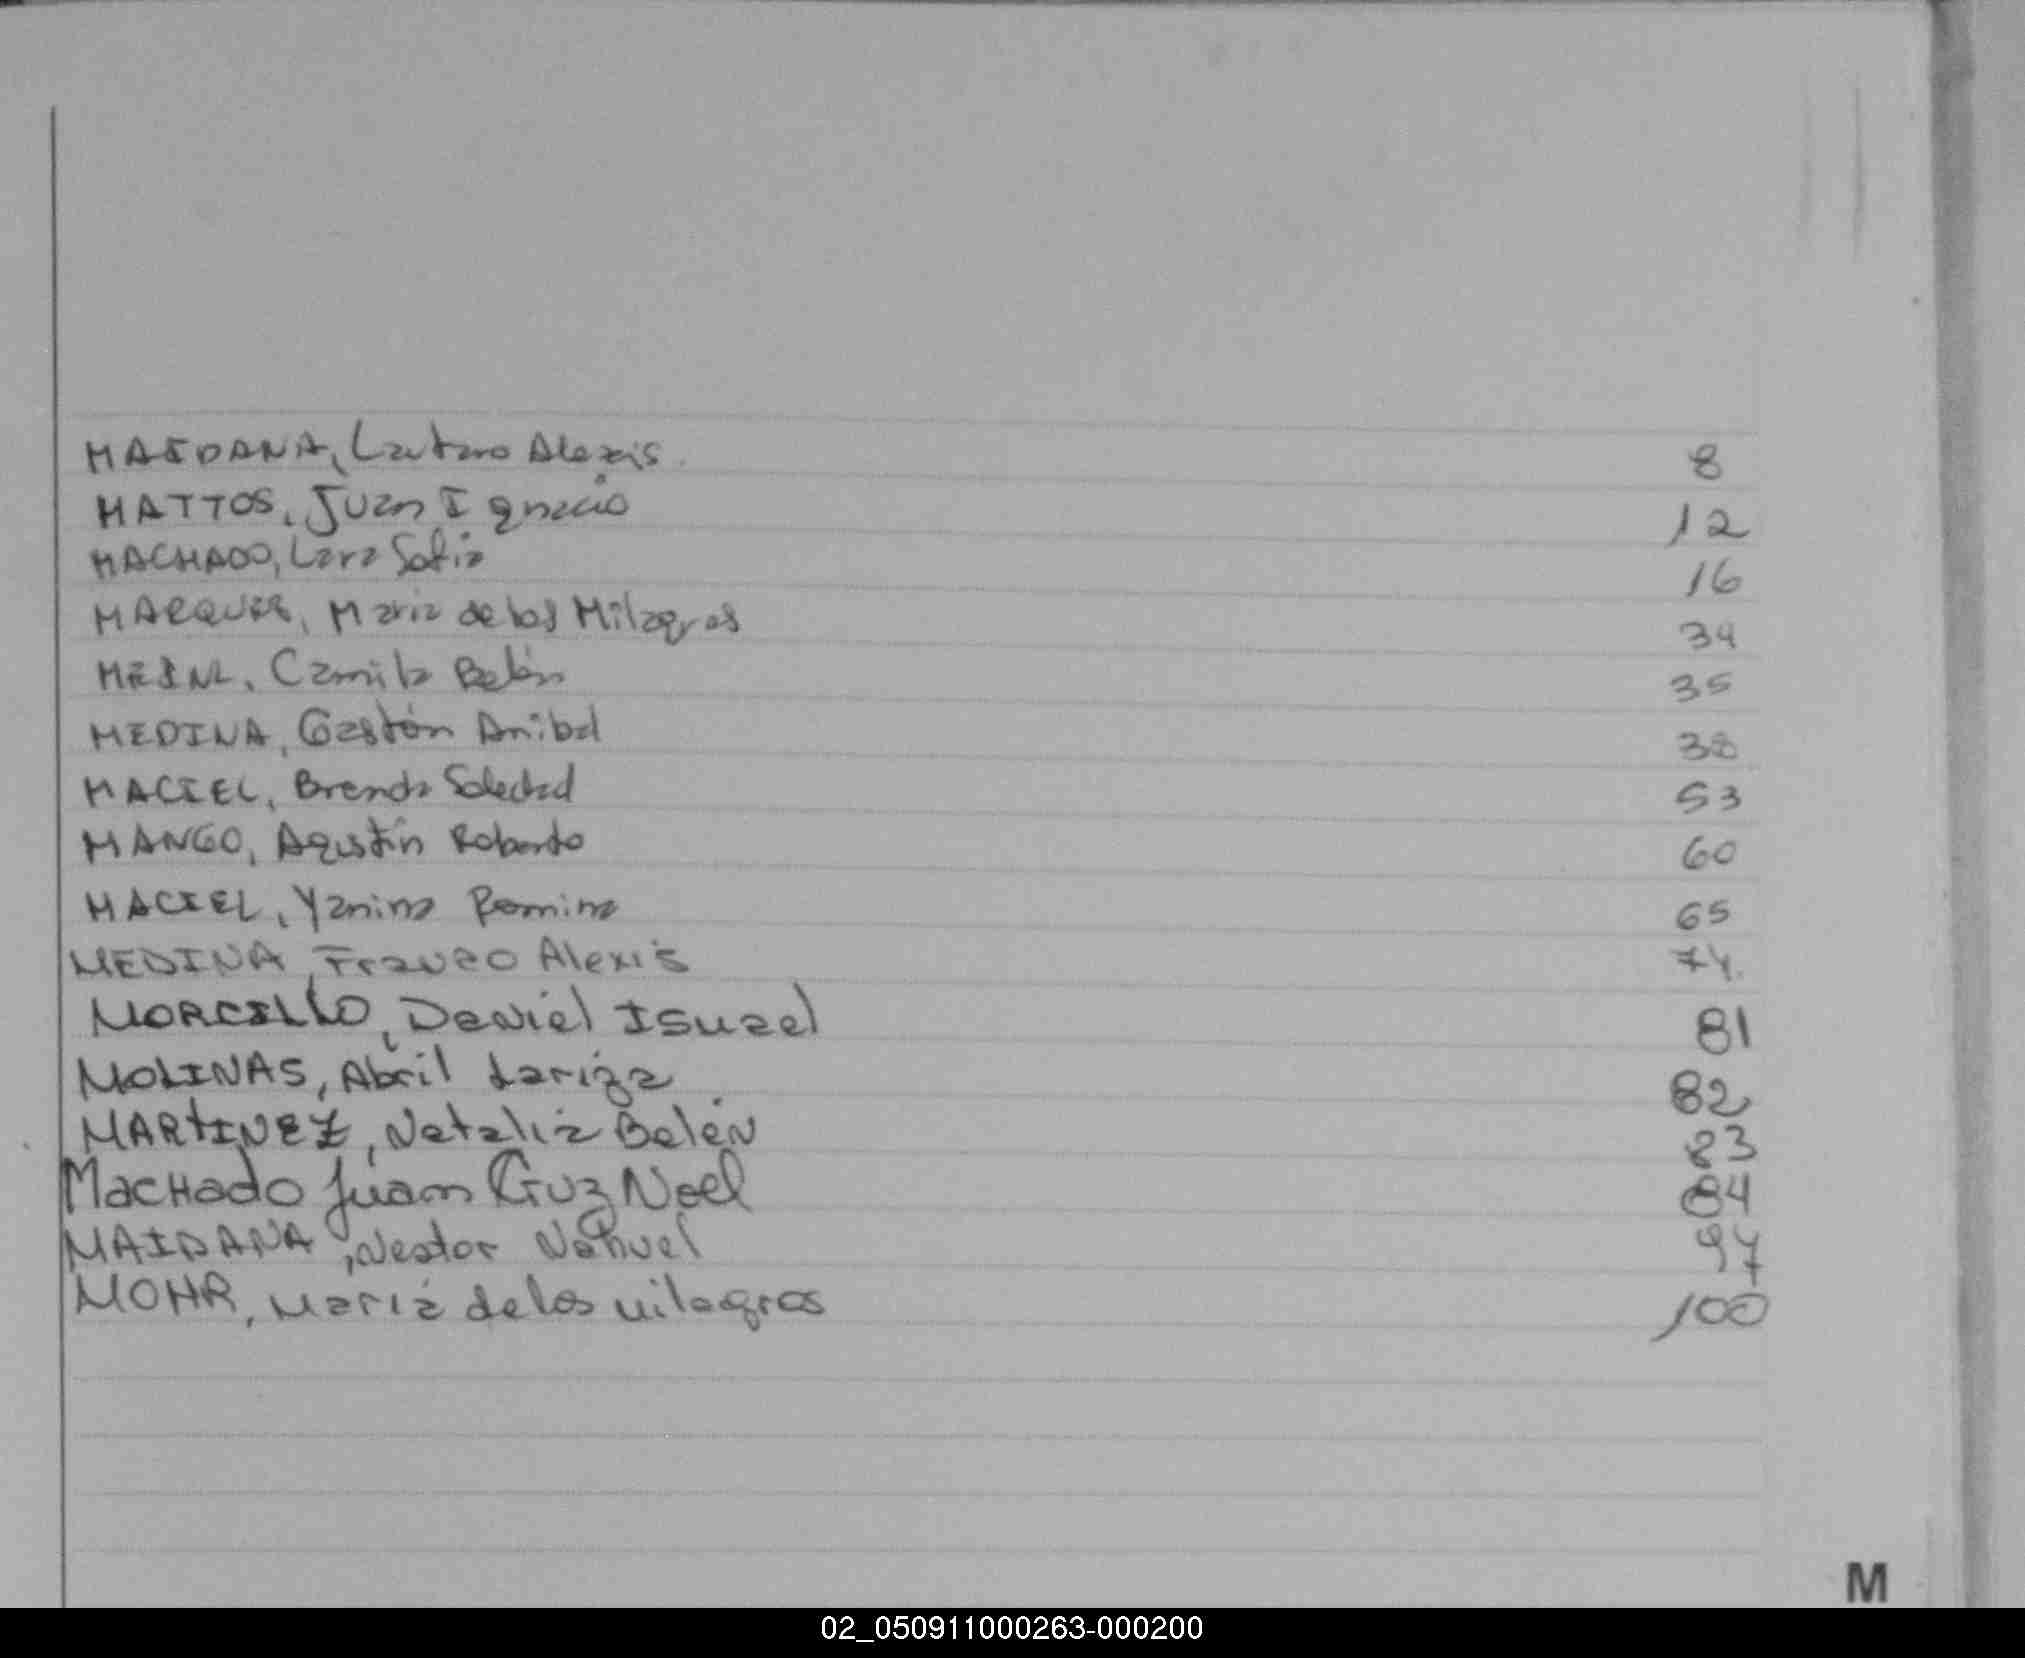 MAIDANA, Lautaro Alexis. 8
MATTOS, Juan Ignacio 12
MACHADO, Lara Sofia 16
MARQUES, Maria de los Milagros 34
Camila Belén 35
MEDINA, Gastón Anibal 38
MACIEL, Brenda Soledad 53
MANGO, Agustín Roberto 60
MACIEL, Yanina Romina 65
MEDINA, Franco Alexis 74.
MORCILLO, Daniel 81
MOLINAS, Abril 82
MARTINEZ, Natalia Belén 83
MACHado Juan Cruz Noel 84
MAIDANA, Nestor Nahuel 97
MOHR, Maria de los milagros 100
M
02_050911000263-000200